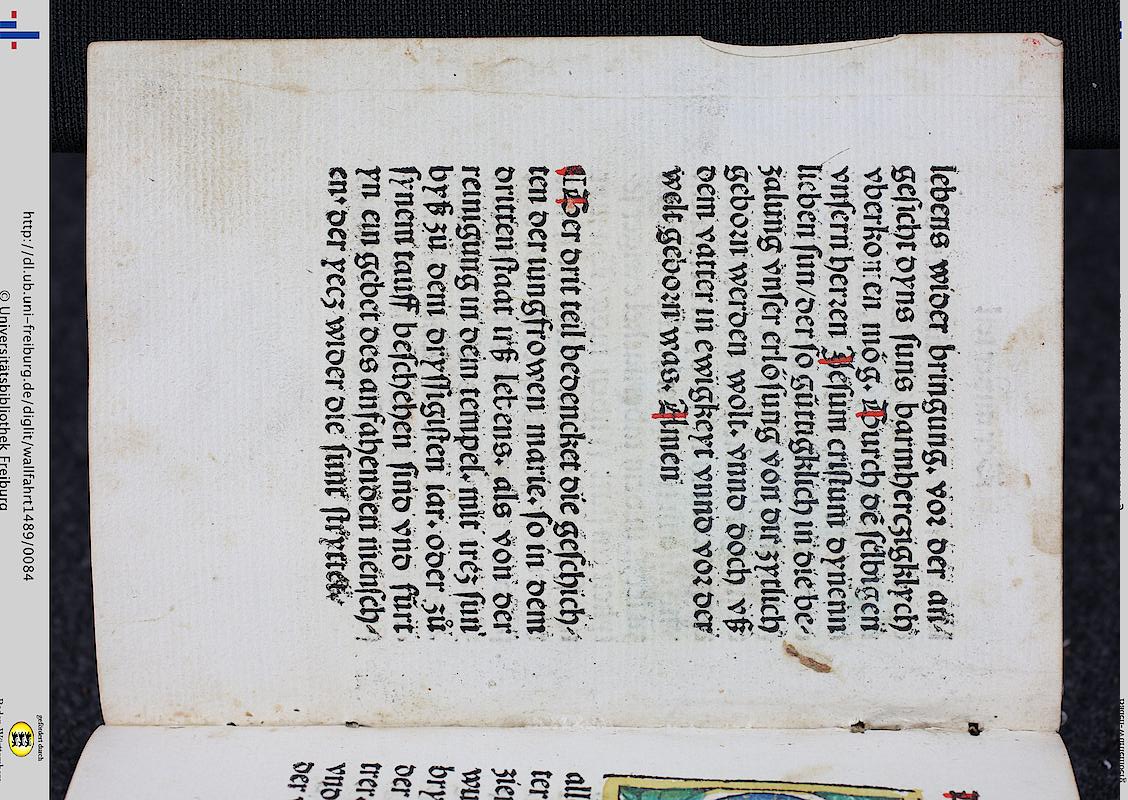 lebens wider bringung. vor der an/
gesicht dyns suns barmherczigklych
vberkomen mög. Durch dē selbigen
vnsern herren Jesum cristum dynenn
lieben sun/ der so güttigklich in die be-
zalung vnser erlösung von dir zytlich
geborn werden wolt. vnnd doch vß
dem vatter in ewigkeyt vnnd vor der
welt geborn was. Amen
Der drit teil bedencket die geschich-
ten der iungfrowen marie. so in dem
dritten staat irß lebens. als von der
reinigung in dem tempel. mit irez sun
byß zů dem dryssigisten iar. oder zů
synem tauff beschehen sind vnd fürt
yn ein gebet des anfahenden mensch-
en. der yecz wider die sünt strytet.
all
ter
zier
wu
bry
der
trer
vnd
der
http://dl.ub.uni-freiburg.de/diglit/wallfahrt1489/0084
© Universitätsbibliothek Freiburg
gefördert durch